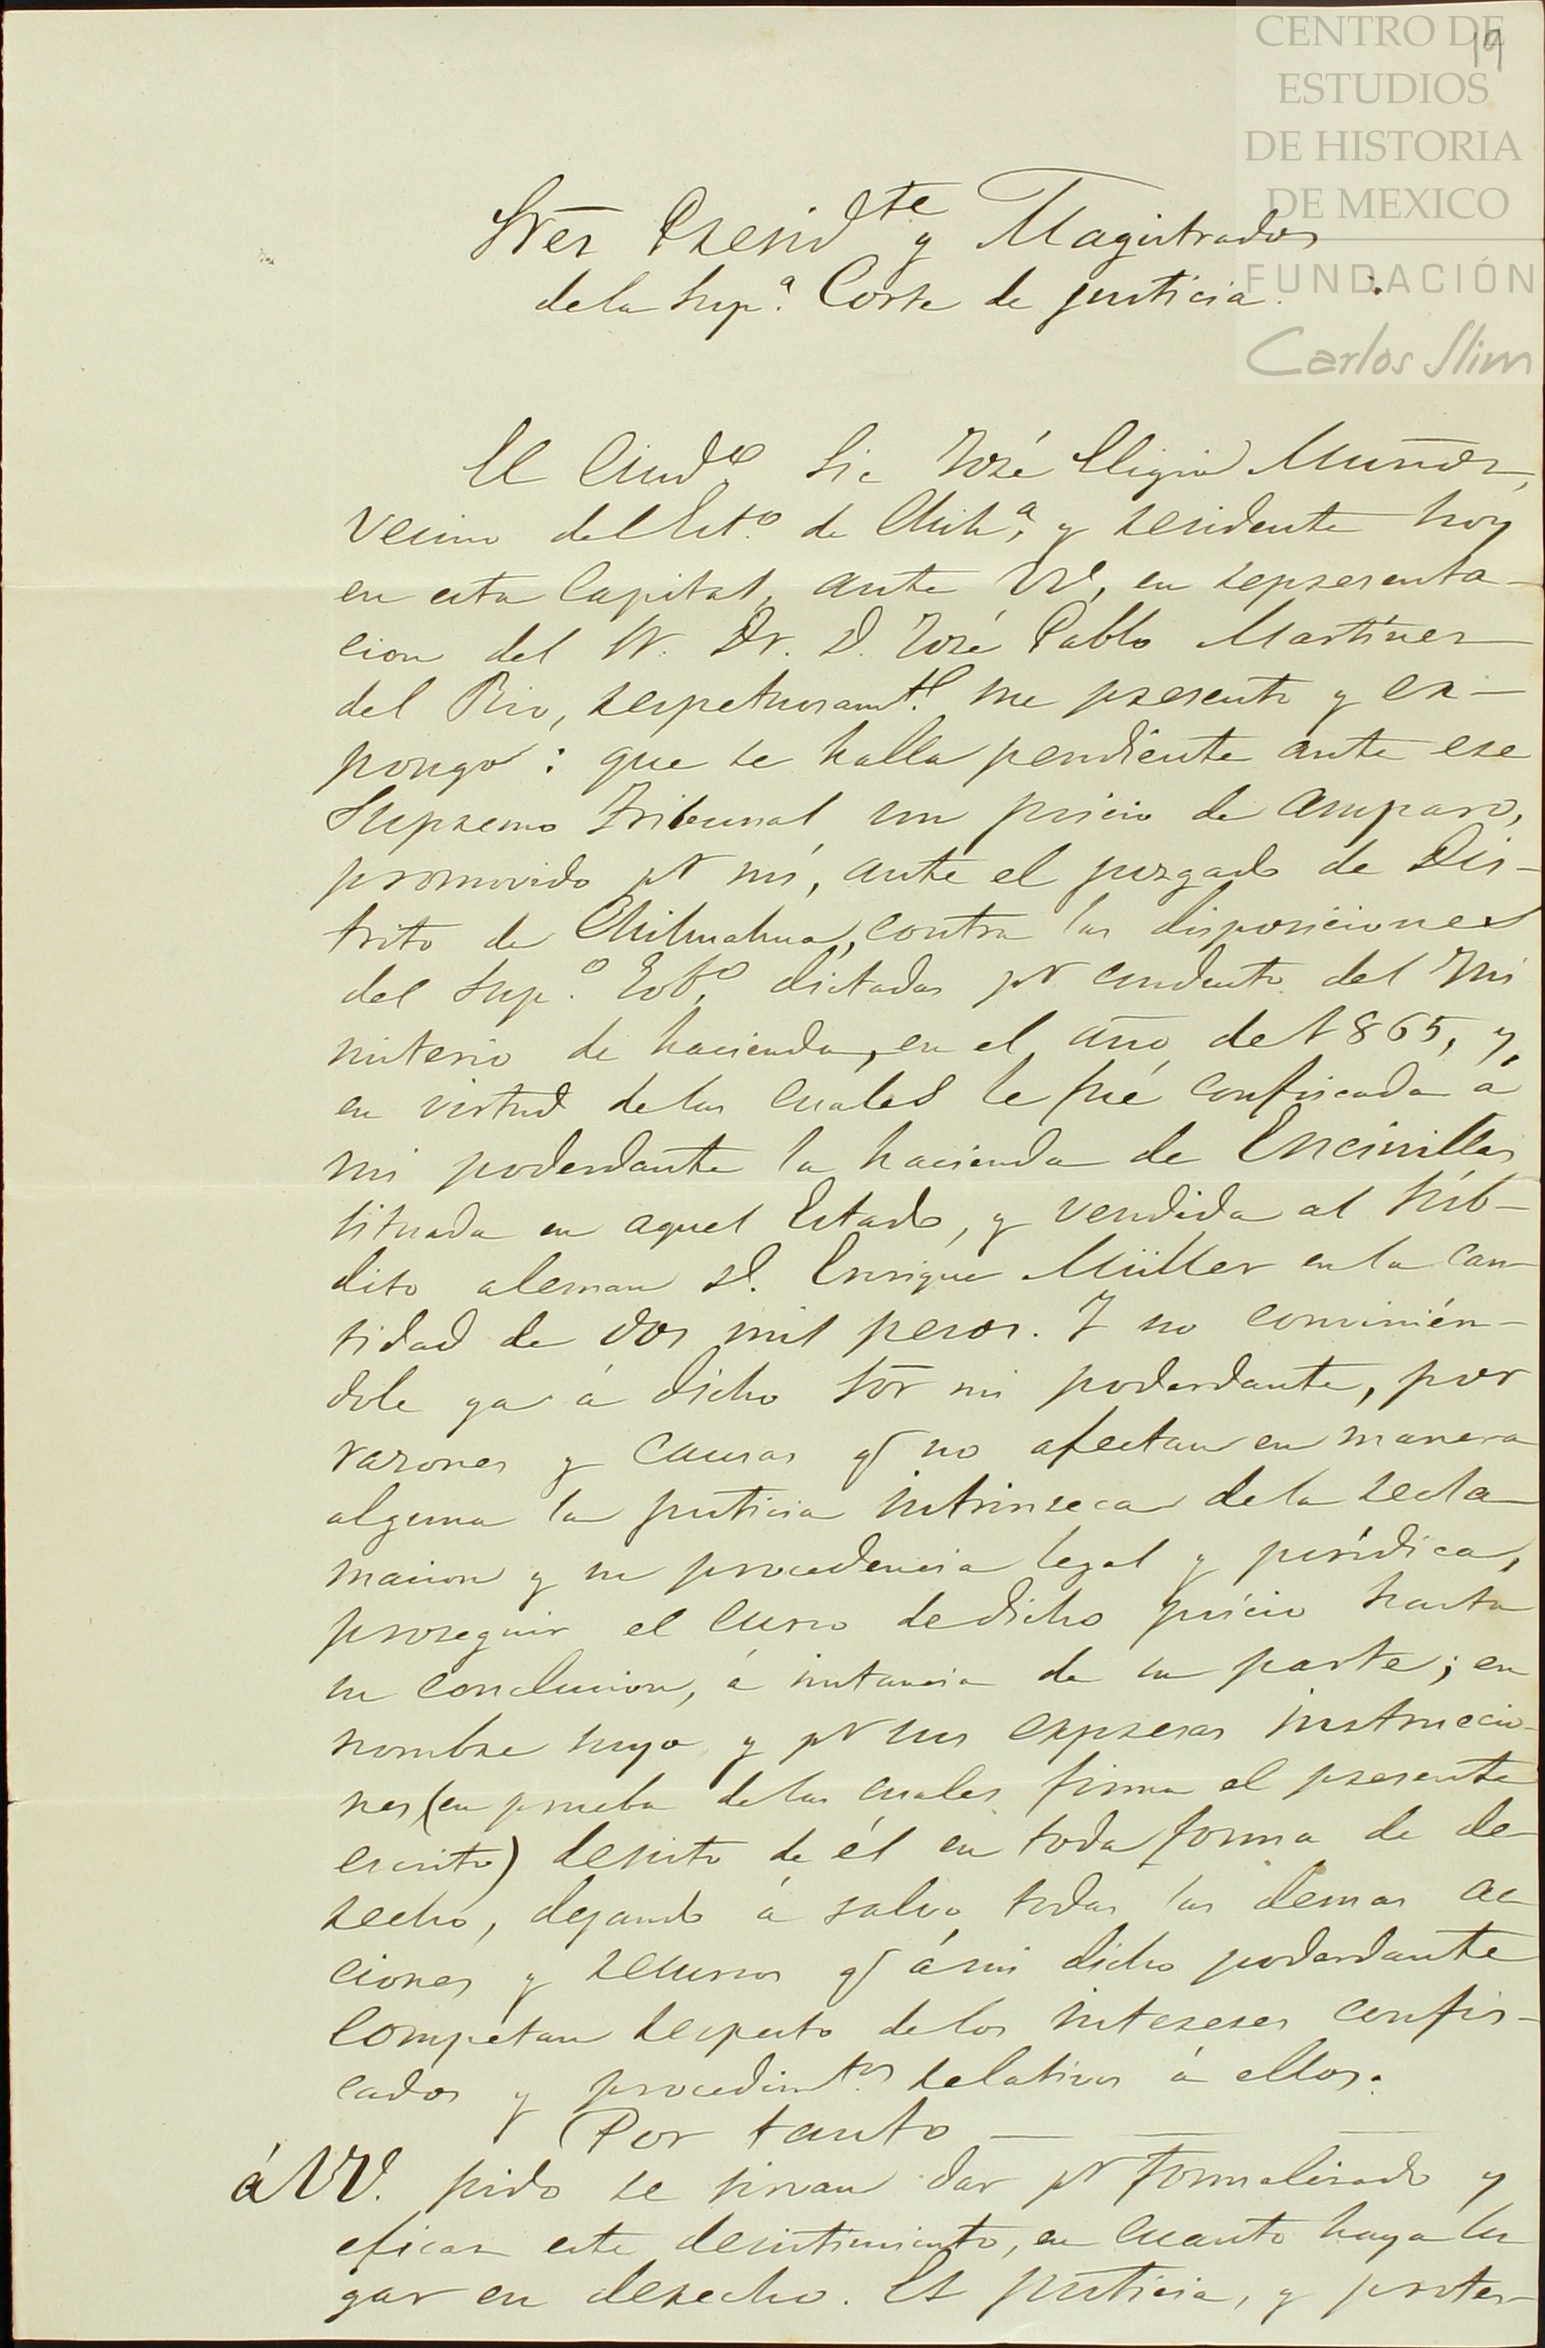 CENTRO DE
ESTUDIOS
DE HISTORIA
DE MEXICO
FUNDACIÓN
Carlos Slim
19
Sres Presidte y Magistrados
de la Supa. Corte de justicia.
El Ciudo. Lic José Eligio Muñoz,
vecino del Esto. de Chiha. y residente hoy
en esta Capital, ante VV, en representa-
cion del Sr. Dr. D. José Pablo Martínez
del Rio, respetuosamte. me presento y ex-
pongo: que se halla pendiente ante ese
Supremo Tribunal un juicio de amparo,
promovido pr mí, ante el juzgado de Dis-
trito de Chihuahua, contra las disposiciones
del Supo. Gobo. dictadas pr conducto del Mi
nisterio de hacienda, en el año de 1865, y,
en virtud de las cuales le fué confiscada á
mi poderdante la hacienda de Encinillas
situada en aquel Estado, y vendida al súb-
dito aleman D. Enrique Müller en la can
tidad de dos mil pesos. Y no convinién-
dole ya á dicho Sor mi poderdante, por
razones y causas q no afectan en manera
alguna la justicia intrinseca de la recla
macion y su procedencia legal y jurídica,
proseguir el curso de dicho juicio hasta
su conclusion, á instancia de su parte; en
nombre suyo y pr sus expresas instruccio-
nes (en prueba de las cuales firma el presente
escrito) desisto de él en toda forma de de-
recho, dejando á salvo todas las demas ac
ciones y recursos q á mi dicho poderdante
competan respecto de los intereses confis-
cados y procedimtos. relativos á ellos.
Por tanto
á VV. pido se sirvan dar pr formalizado y
eficaz este desistimiento, en cuanto haya lu
gar en derecho. Es justicia, y protes-